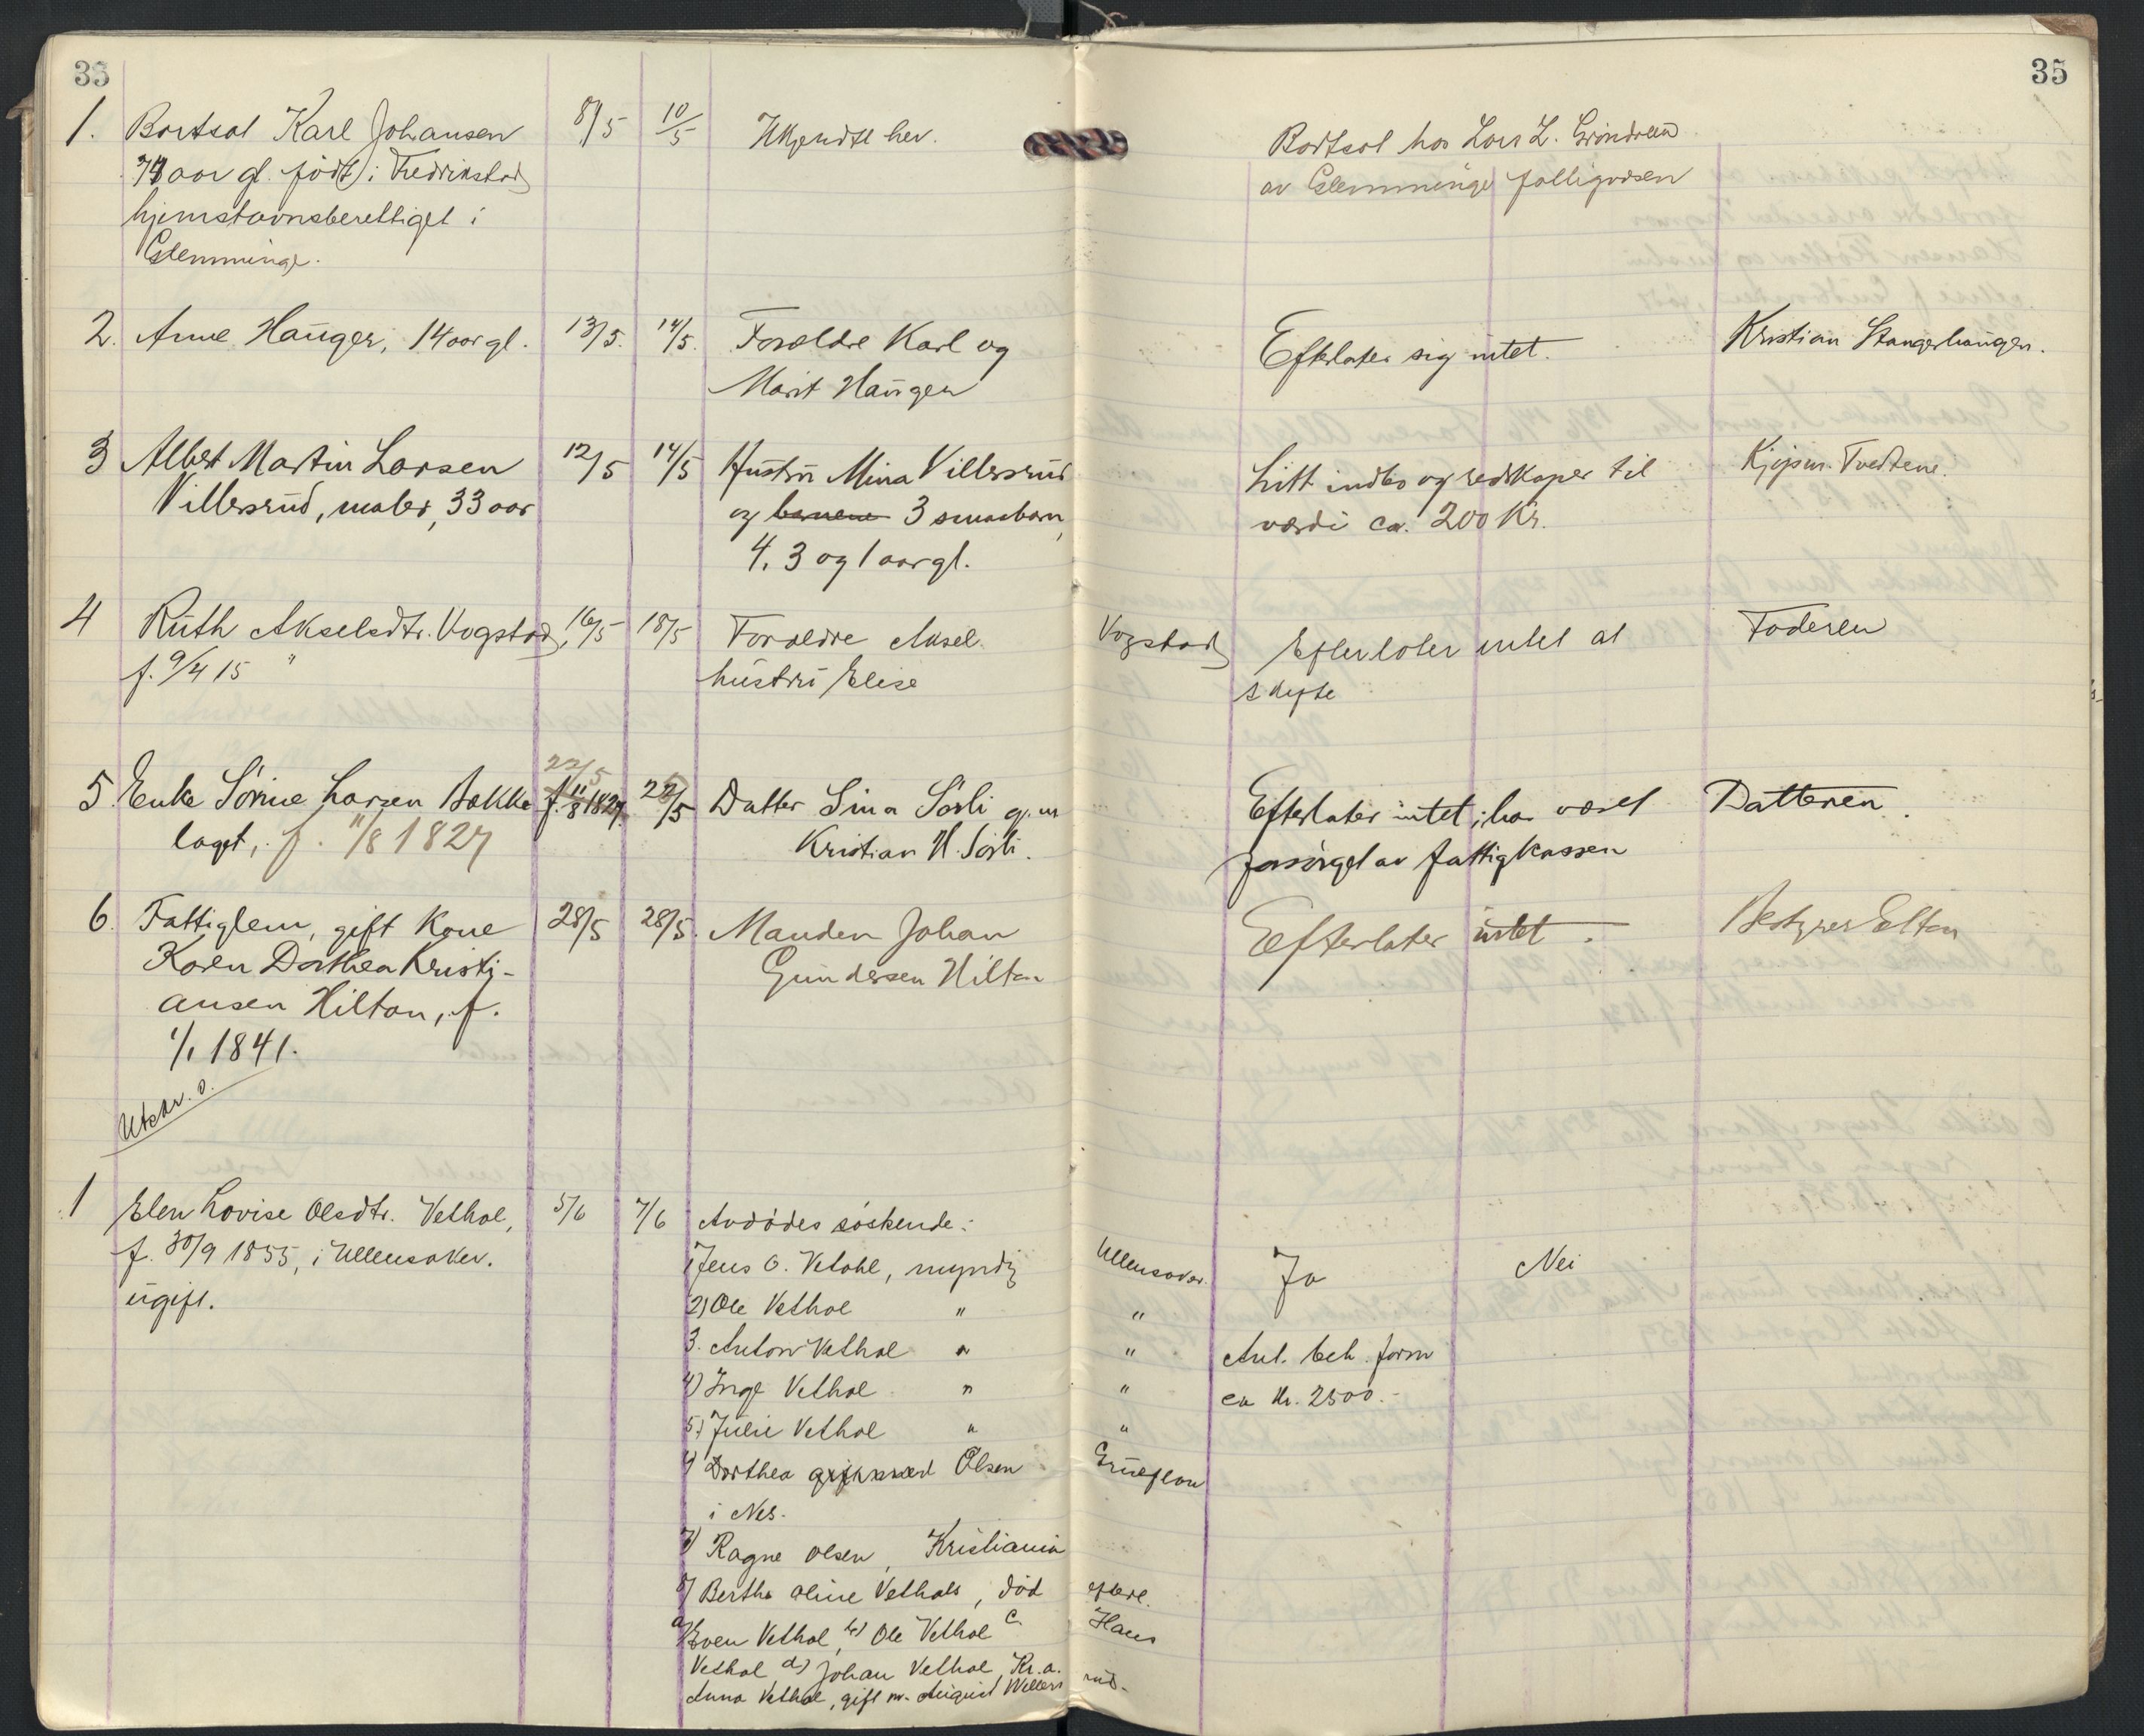 35
1. Bortsat Karl Johansen 8/5 10/5 Ukjendte her. Bortsat hos Lars L.
74 aar gl. født i Fredrikstad av Glemminge fattigvæsen
hjemstavnsberettiget i
Glemminge.
2. Arne Haugen, 14 aar gl. 13/5. 14/5. Forældre Karl og Efterlater sig intet. Kristian Stangerhaugen.
Marit Haugen
3 Albert Martin Larsen 12/5 14/5 Hustru Mina Villersrud Litt indbo og redskaper til Kjøpm. Tvedtene.
Villersrud, maler, 33 aar og barnene 3 smaabarn, værdi ca. 200 Kr.
4, 3 og 1 aar gl.
4 Ruth Akselsdtr. Vogstad, 16/5 18/5 Forældre Aksel Vogstad Efterlater intet at Faderen
f. 9/4 15 " hustru Elise skifte
22/5
5. Enke Sørine Larsen Bakke f. 11/8 1827. 22/5 Datter Lina Sørli g. m. Efterlater intet; har været Datteren.
laget, f. 11/8 1827 Kristian H. Sørli. forsørget av fattigkassen
6. Fattiglem, gift Kone 28/5 28/5. Manden Johan Efterlater intet. Bestyrer Elton
Karen Dorthea Kristi- Gundersen Hilton
ansen Hilton, f.
1/1 1841.
Utskr. O.
1 Elen Lovise Olsdtr. Vethal, 5/6 7/6 Avdødes søskende:
f. 30/9 1855, i Ullensaker. 1) Jens O. Vetahl, myndig Ullensaker. Ja Nei
ugift. 2) Ole Vethal " "
3. Anton Vethal " " Ant. beh. form
4) Inge Vethal " " ca kr. 2500.-
5) Julie Vethal " "
Dorthea gift med Olsen
i Nes.
7) Ragne Olsen, Kristiania
8) Berthe Oline Vethals, død efterl.
a) Even Vethal, b) Ole Vethal c. Hans
Vethal d) Johan Vethal, Kr.a.
Anna Vethal, gift m. August Willers rud.
35